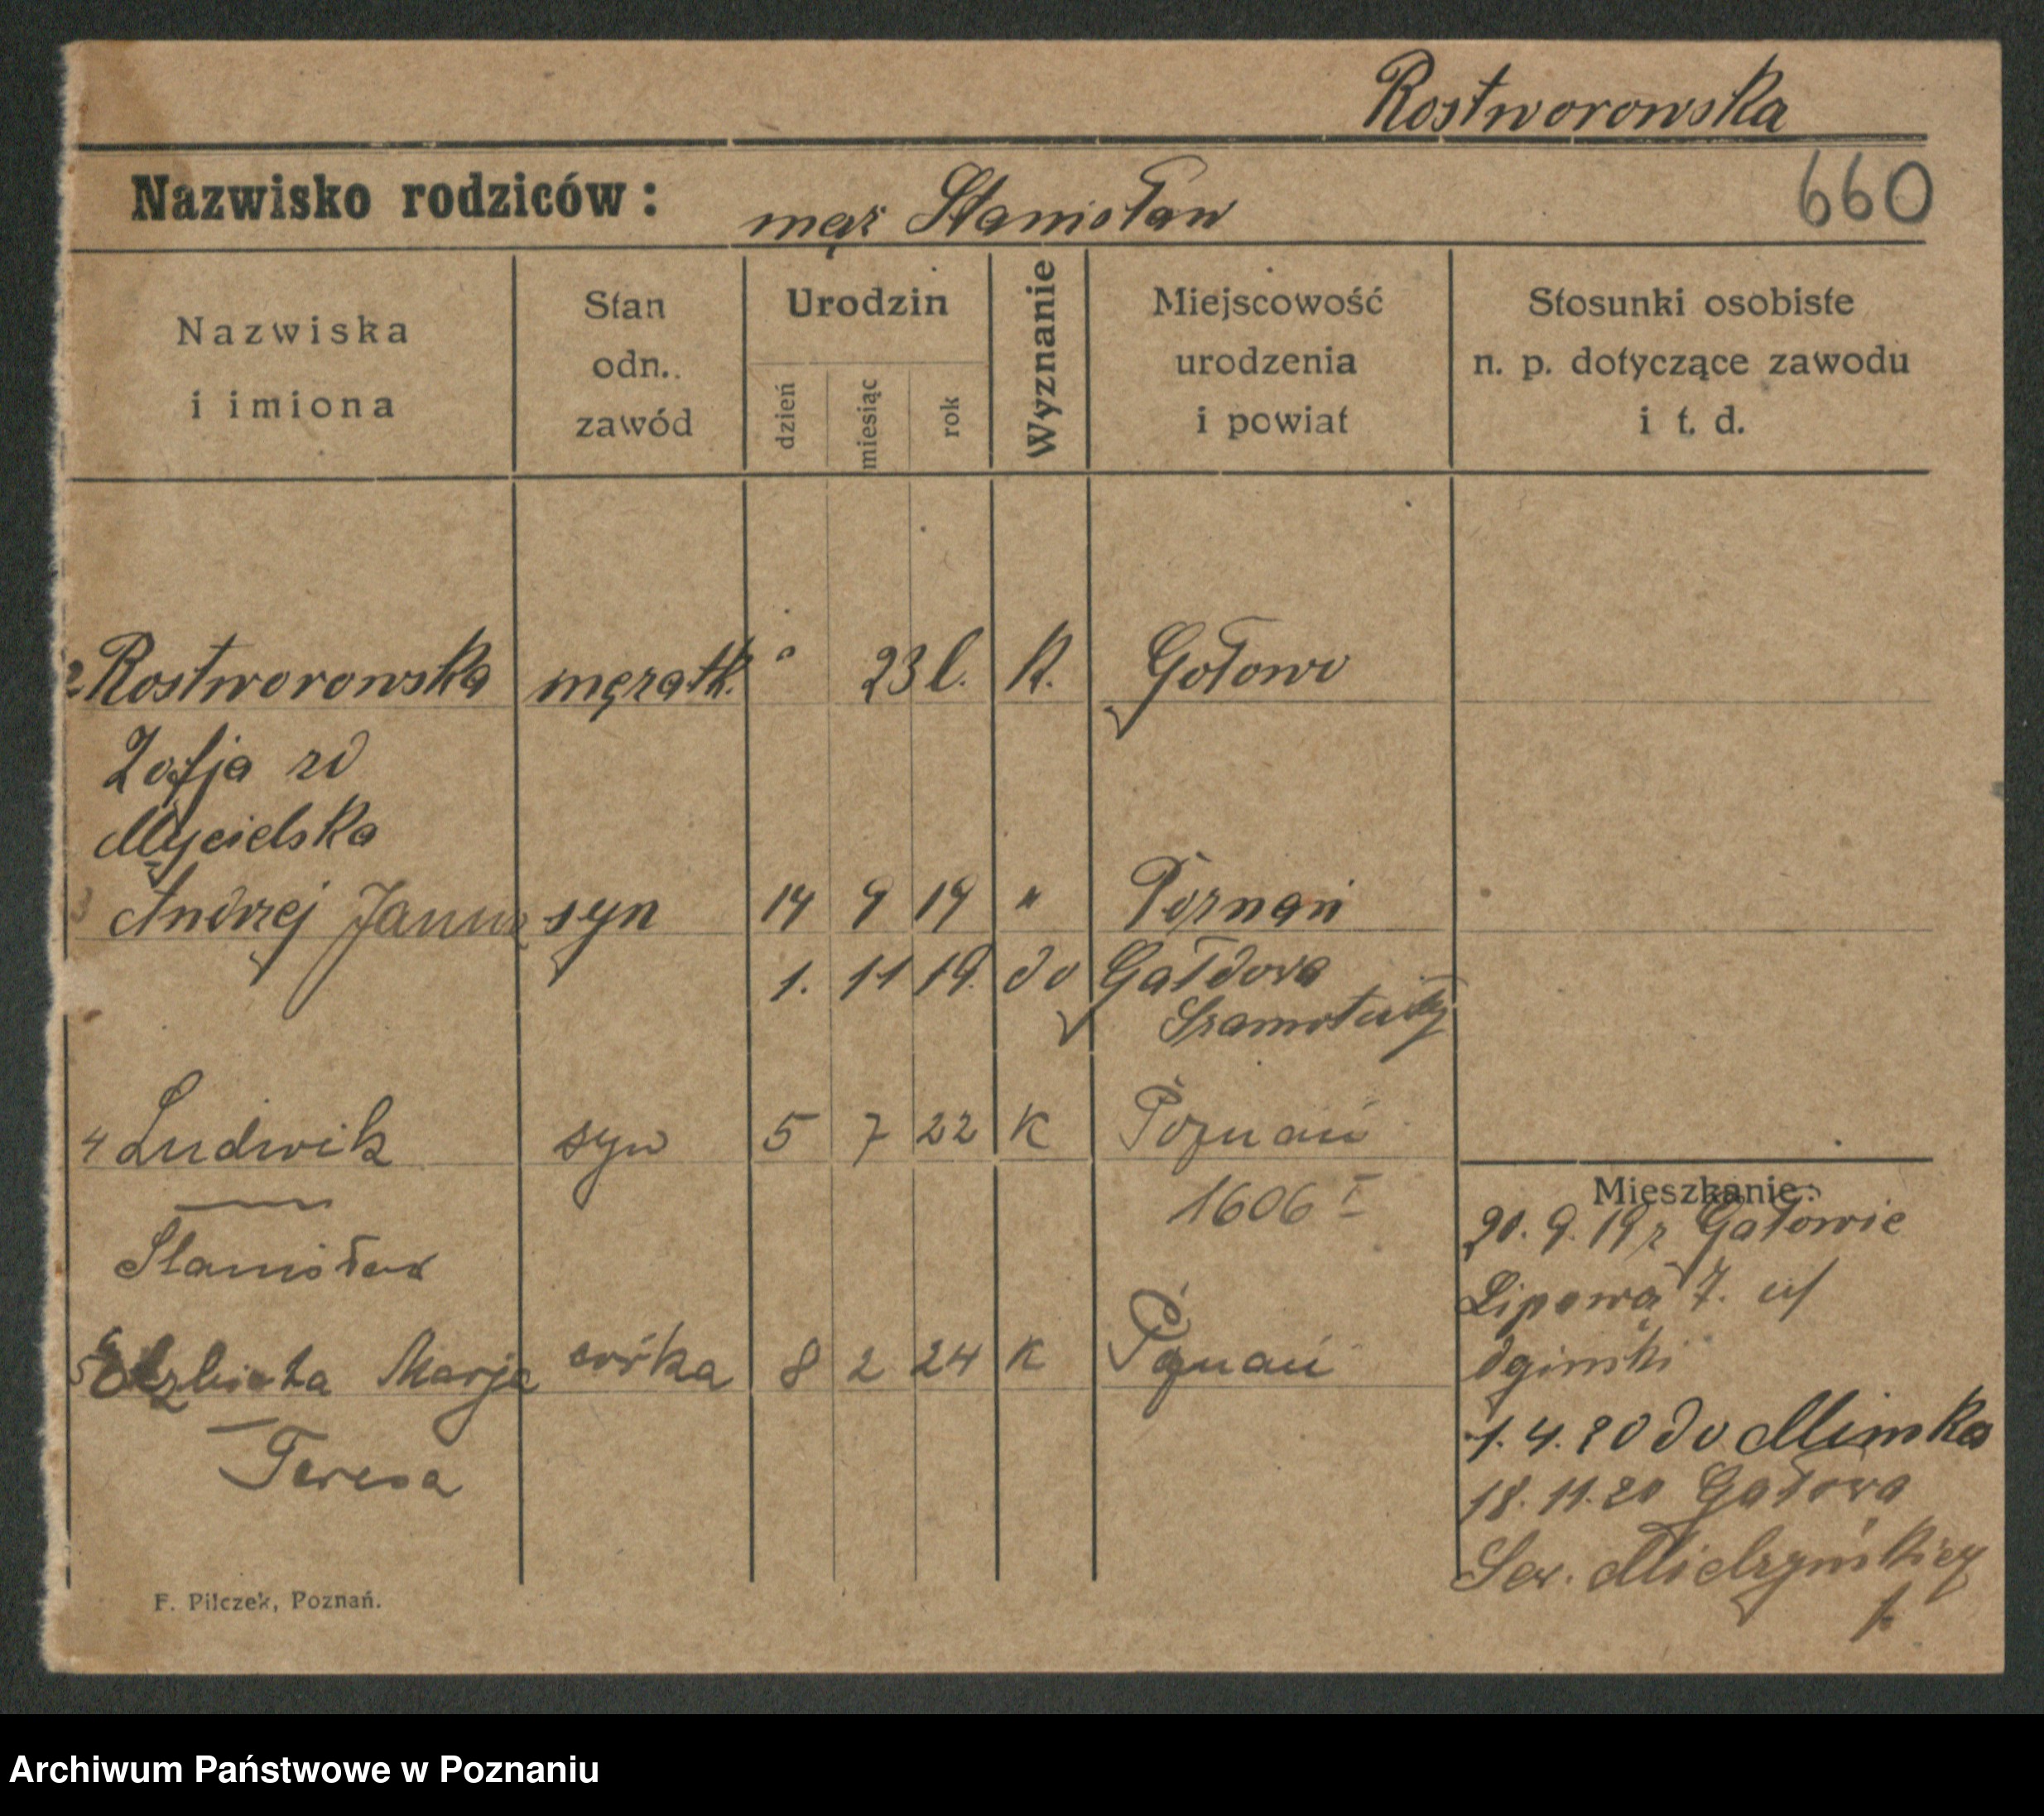 Rostworowska
Nazwisko rodziców: mąż Stanisław
660
Nazwiska
i imiona
Stan
odn.
zawód
Urodzin
dzień
miesiąc
rok
Wyznanie
Miejscowość
urodzenia
i powiat
Stosunki osobiste
n. p. dotyczące zawodu
i t. d.
2 Rostworowska mężatk. 23 l. K.
Zofja
Mycielska
3 Andrzej syn 14 9 19 " Poznań
1. 11 19. do
4 Ludwik syn 5 7 22 K Poznań
1606 I
Stanisław
5 Elzbieta Marja córka 8 2 24 K Poznań
Teresa
Mieszkanie:
20. 9. 19 z Gałowie
Lipowa 7.
1. 4. 20 do
18. 11. 20
Sew. Mielzyńskieg
F. Pilczek, Poznań.
Archiwum Państwowe w Poznaniu